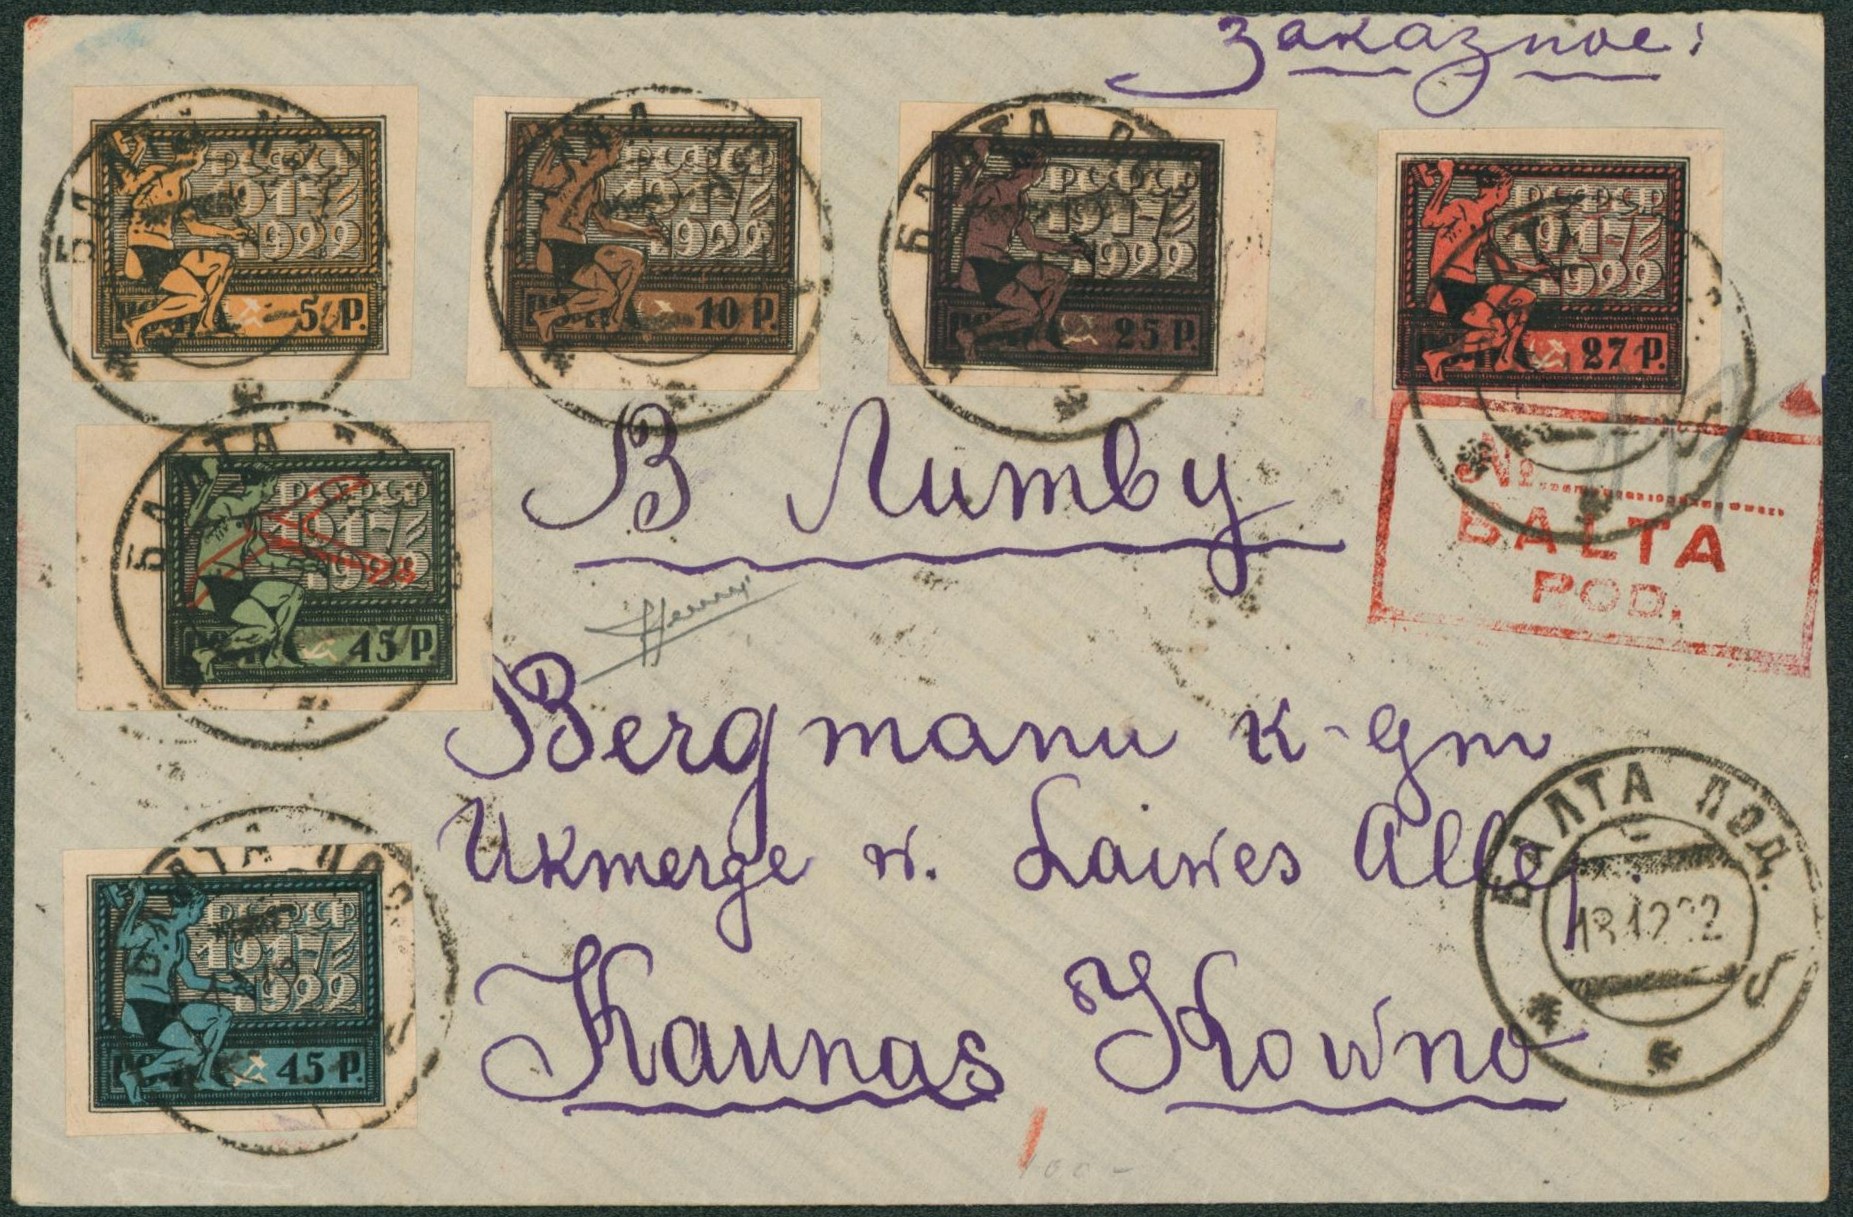 Заказное:
РСФСР
1917
1922
5 Р.
РСФСР
1917
1922
10 Р.
РСФСР
1917
1922
25 Р.
РСФСР
1917
1922
27 Р.
БАЛТА
БАЛТА
БАЛТА
В Литву
№
BALTA
POD.
РСФСР
1917
1922
45 Р.
БАЛТА
Bergmann
Ukmerge
Allej.
БАЛТА ПОД.
18 12 22
Б
РСФСР
1917
1922
45 Р.
Kaunas Kowno